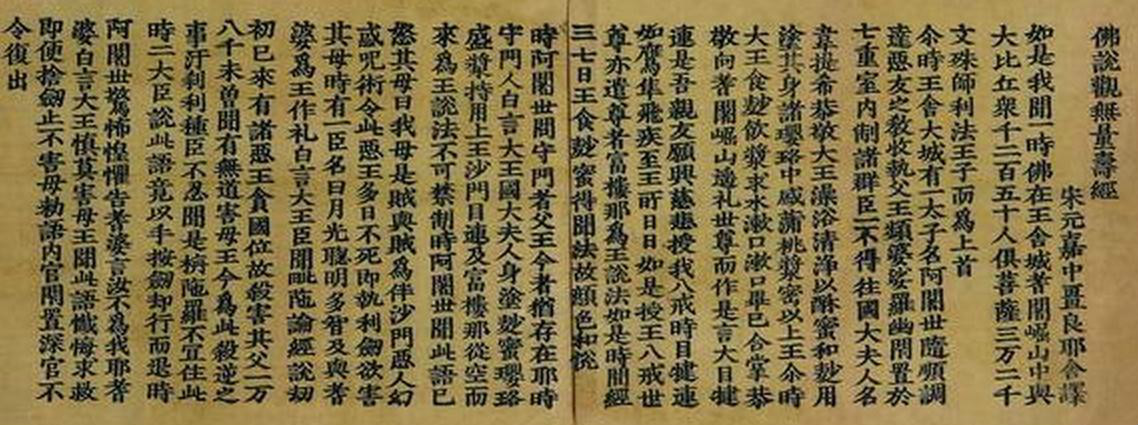 佛說觀無量壽經
宋元嘉中畺良耶舍譯
如是我聞一時佛在王舍城耆闍崛山中與
大比丘衆千二百五十人俱菩薩三万二千
文殊師利法王子而爲上首
尒時王舍大城有一太子名阿闍世隨順調
達惡友之教收執父王頻婆娑羅幽閇置於
七重室内制諸群臣一不得往國大夫人名
韋提希恭敬大王澡浴清淨以酥蜜和麨用
塗其身諸瓔珞中盛蒲桃漿密以上王尒時
大王食麨飲漿求水漱口漱口畢已合掌恭
敬向耆闍崛山遥礼世尊而作是言大目揵
連是吾親友願興慈悲授我八戒時目揵連
如鷹隼飛疾至王所日日如是授王八戒世
尊亦遣尊者富樓那爲王說法如是時閒經
三七日王食麨蜜得聞法故顔色和悅
時阿闍世問守門者父王今者猶存在耶時
守門人白言大王國大夫人身塗麨蜜瓔珞
盛漿持用上王沙門目連及富樓那從空而
來爲王說法不可禁制時阿闍世聞此語已
怒其母曰我母是賊與賊爲伴沙門惡人幻
惑呪術令此惡王多日不死即執利劒欲害
其母時有一臣名曰月光聰明多智及與耆
婆爲王作礼白言大王臣聞毗陁論經說劫
初已來有諸惡王貪國位故殺害其父一万
八千未曾聞有無道害母王今爲此殺逆之
事汙刹利種臣不忍聞是栴陁羅不宜住此
時二大臣說此語竟以手按劒却行而退時
阿闍世驚怖惶懼告耆婆言汝不爲我耶耆
婆白言大王慎莫害母王聞此語懺悔求救
即便捨劒止不害母勑語内官閇置深宫不
令復出